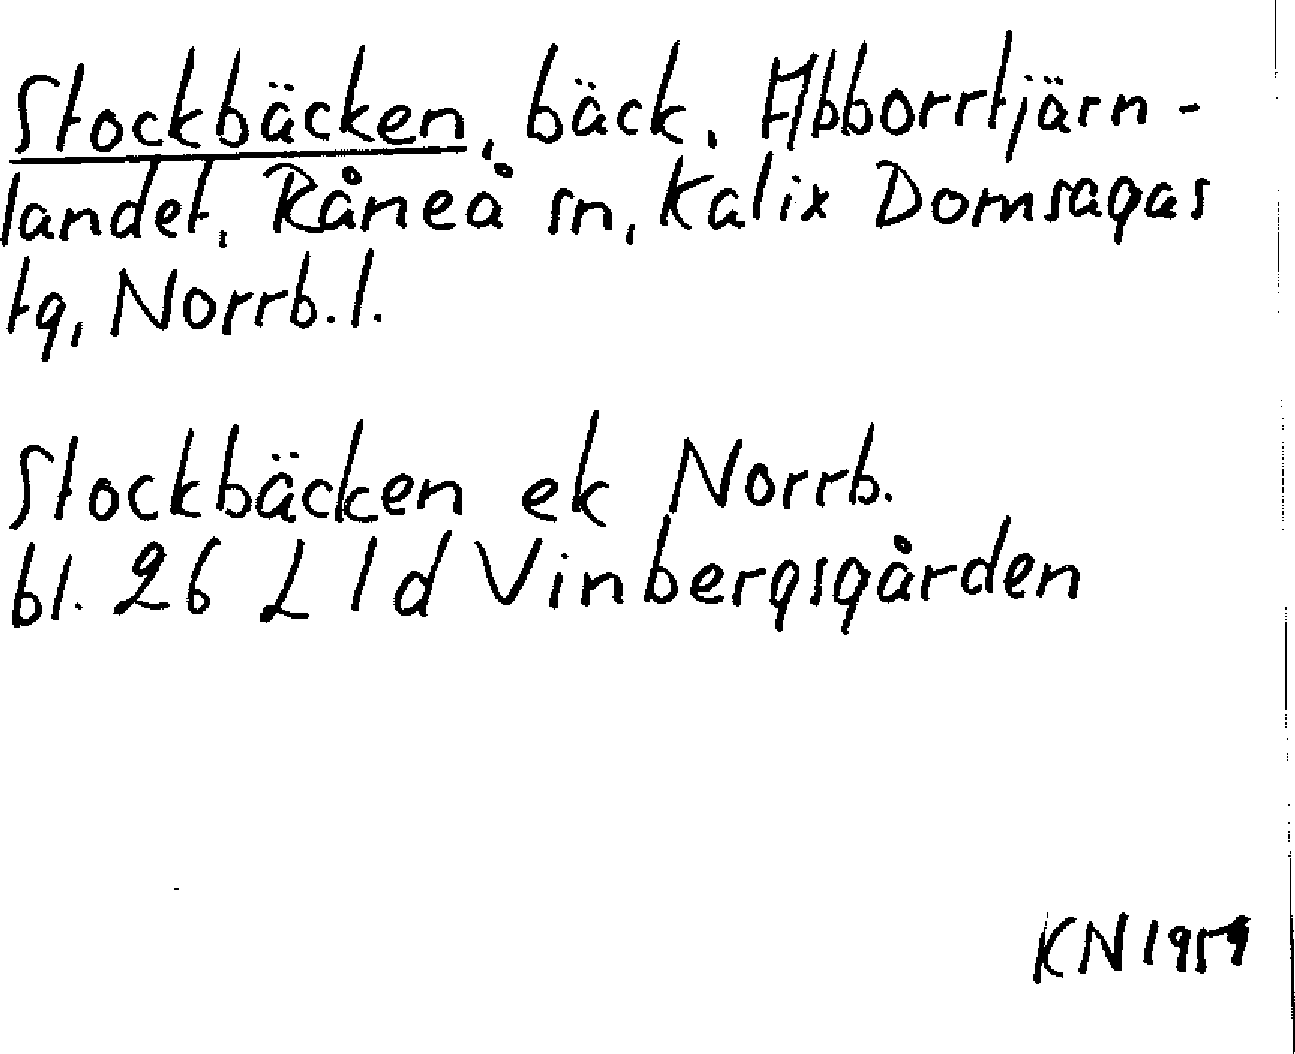 Stockbäcken, bäck, Abborrtjärn-
landet, Råneå sn, Kalix Domsagas
tg, Norrb. l.
Stockbäcken ek Norrb.
bl. 26 L 1 d Vinbergsgården
KN 1959